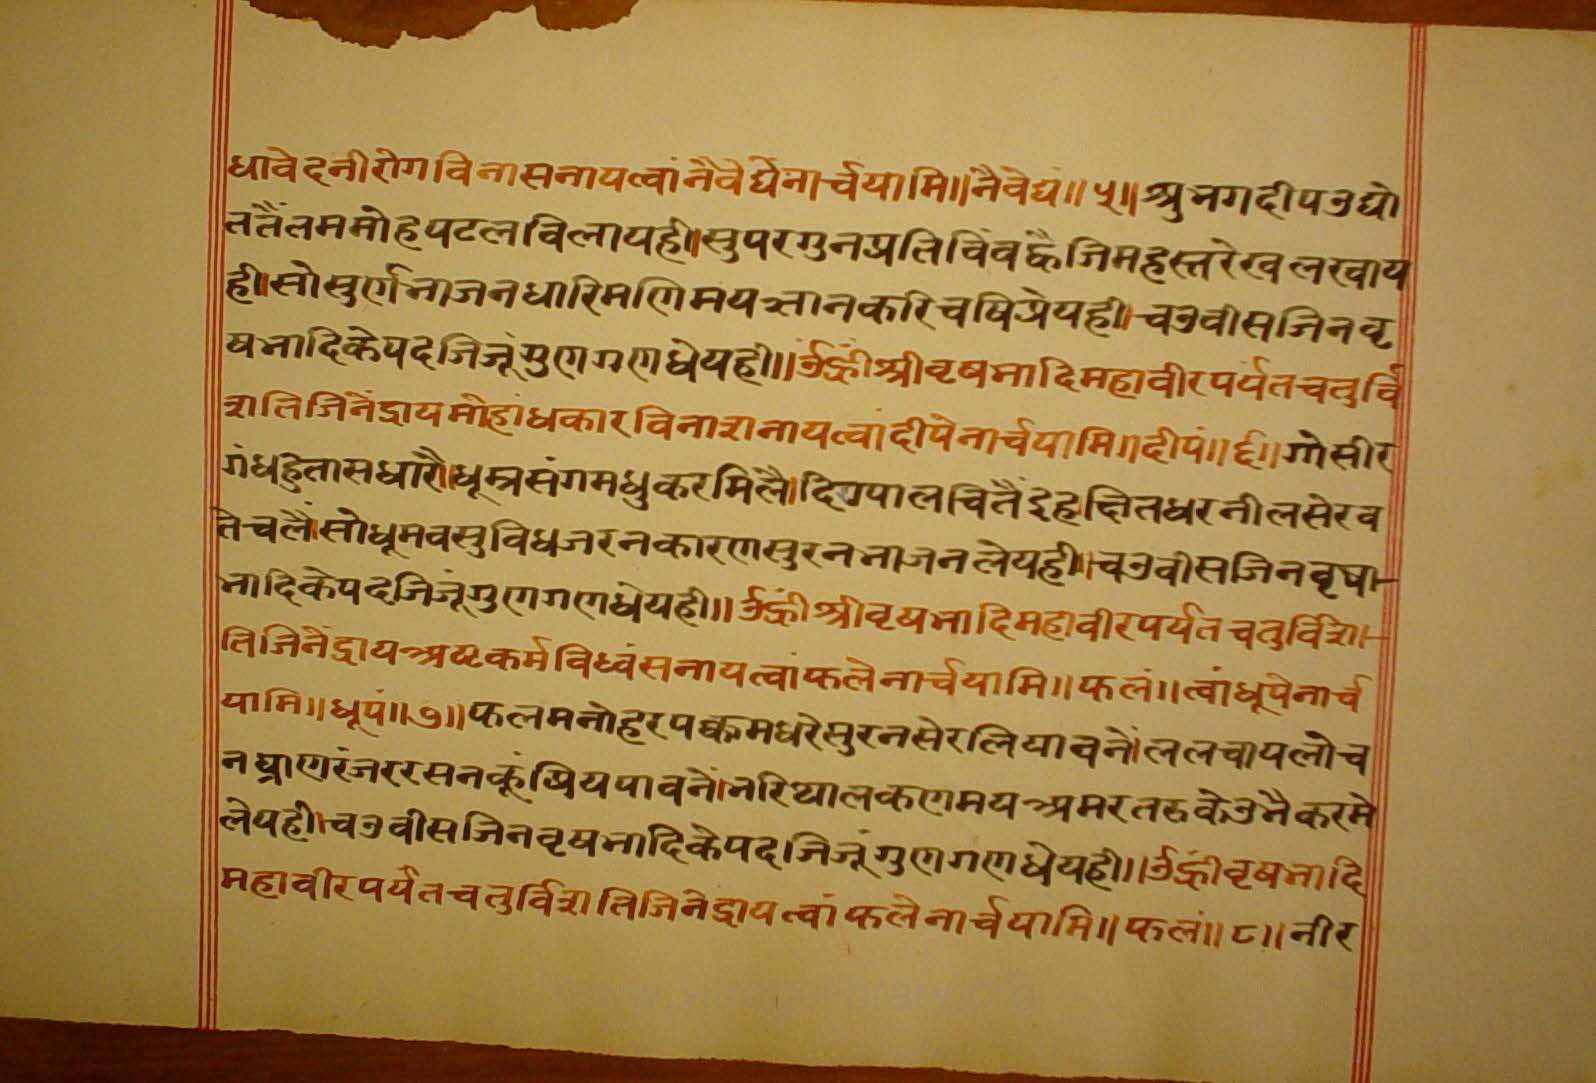 धावेदनीरोगविनासनायत्वांनैवेर्द्येनार्चयामि॥नैवेद्यं॥५॥श्रुभगदीपउद्यो
ततैंतममोहपटलविलायही।सुपरगुनप्रतिविंवह्वैजिमहस्तरेखलखाय
ही।सोसुर्णभाजनधारिमणिमयत्तानकरिचषिप्रेयही।चउवीसजिनवृ
षभादिकेपदजिजूंगुणगणधेयही॥ॐह्रींश्रीवृषभादिमहावीरपर्यंतचतुर्वि
शतिजिनेंद्रायमोहांधकारविनाशनायत्वांदीपेनार्चयामि॥दीपं॥६॥गोसीर
गंधहुतासधारौ।धूम्रसंगमधुकरमिलै।दिगपालचितैंइहक्षितधरनीलसेरव
तेचलैं।सोधूमवसुविधजरनकारणसुरनभाजनलेयही।चउवीसजिनवृषा
भादिकेपदजिजूंगुणगणधेयही॥ॐह्रींश्रीवृषभादिमहावीरपर्यंतचतुर्विश
तिजिनेंद्रायअष्टकर्मविध्वंसनायत्वांफलेनार्चयामि॥फलं॥त्वांधूपेनार्च
यामि॥धूपं॥७॥फलमनोहरपक्वमधरेसुरनसेरलियावने।ललचायलोच
नघ्राणरंजररसनकूंप्रियपावने।भरिथालकणमयअमरतरुकेउभैकरमे
लेयही।चउवीसजिनवृषभादिकेपदजिजूंगुणगणधेयही॥ॐह्रींवृषभादि
महावीरपर्यंतचतुर्विशतिजिनेंद्रायत्वांफलेनार्चयामि॥फलं॥८॥नीर